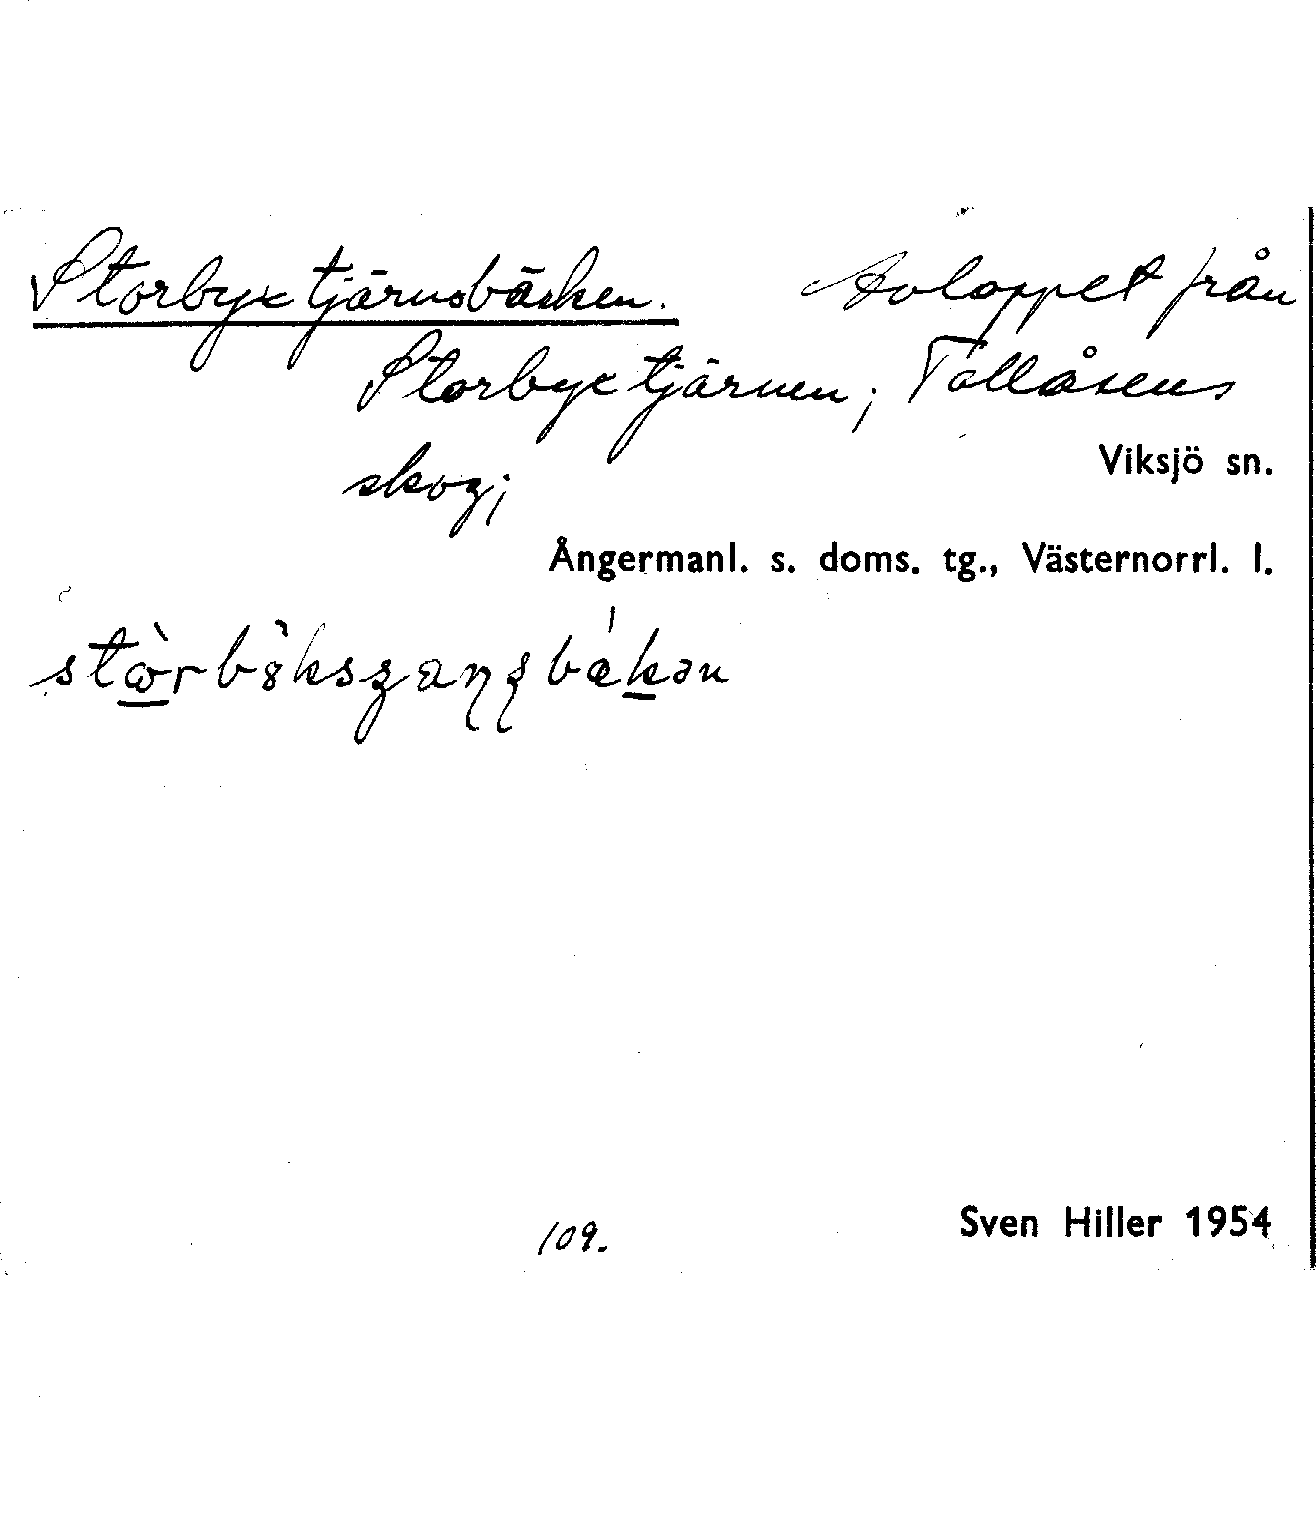 Storbyxtjärnsbäcken. Avloppet från
Storbyxtjärnen, Tallåsens
skog;
Viksjö sn.
Ångermanl. s. doms. tg., Västernorrl. l.
109.
Sven Hiller 1954